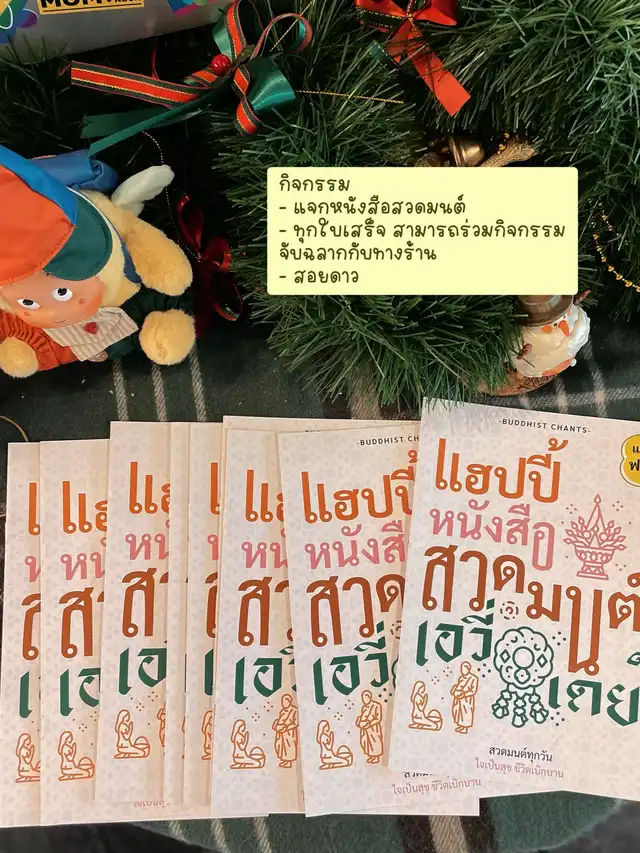 MOM
กิจกรรม
- แจกหนังสือสวดมนต์
- ทุกใบเสร็จ สามารถร่วมกิจกรรม
จับฉลากกับทางร้าน
- สอยดาว
-BUDDHIST CHANTS-
แฮปปี้
หนังสือ
สวดมนต์
เอวี่เดย์
สวดมนต์ทุกวัน
ใจเป็นสุข ชีวิตเบิกบาน
BUDDHIST CH
แฮปปี้
หนังสือ
สวด
เอวี่
ใจเป็นสุข ชีวิตเบิกบาน